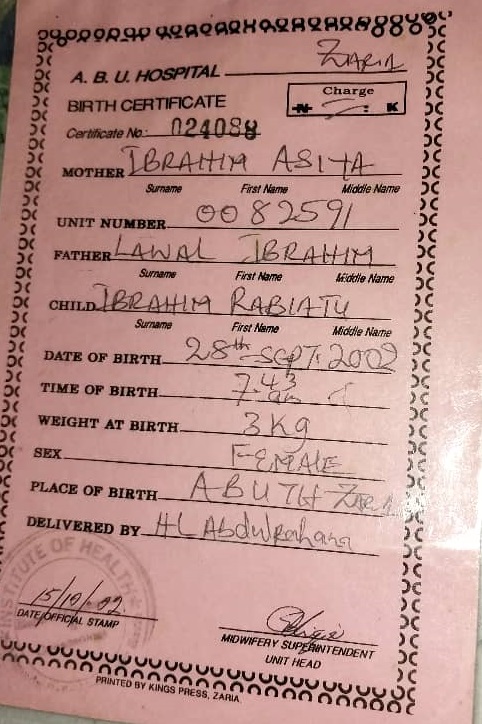 A. B. U. HOSPITAL ZARIA
Charge
BIRTH CERTIFICATE
N : K
Certificate No: 024088
MOTHER IBRAHIM ASIYA
Surname First Name Middle Name
UNIT NUMBER 0082591
FATHER LAWAL IBRAHIM
Surname First Name Middle Name
CHILD IBRAHIM RABIATU
Surname First Name Middle Name
DATE OF BIRTH 28th SEPT. 2002
TIME OF BIRTH 7.43 am
WEIGHT AT BIRTH 3 Kg
SEX FEMALE
PLACE OF BIRTH ABUTH ZARIA
DELIVERED BY
INSTITUTE OF HEALTH
15/10/02
DATE/OFFICIAL STAMP
MIDWIFERY SUPERINTENDENT
UNIT HEAD
PRINTED BY KINGS PRESS, ZARIA